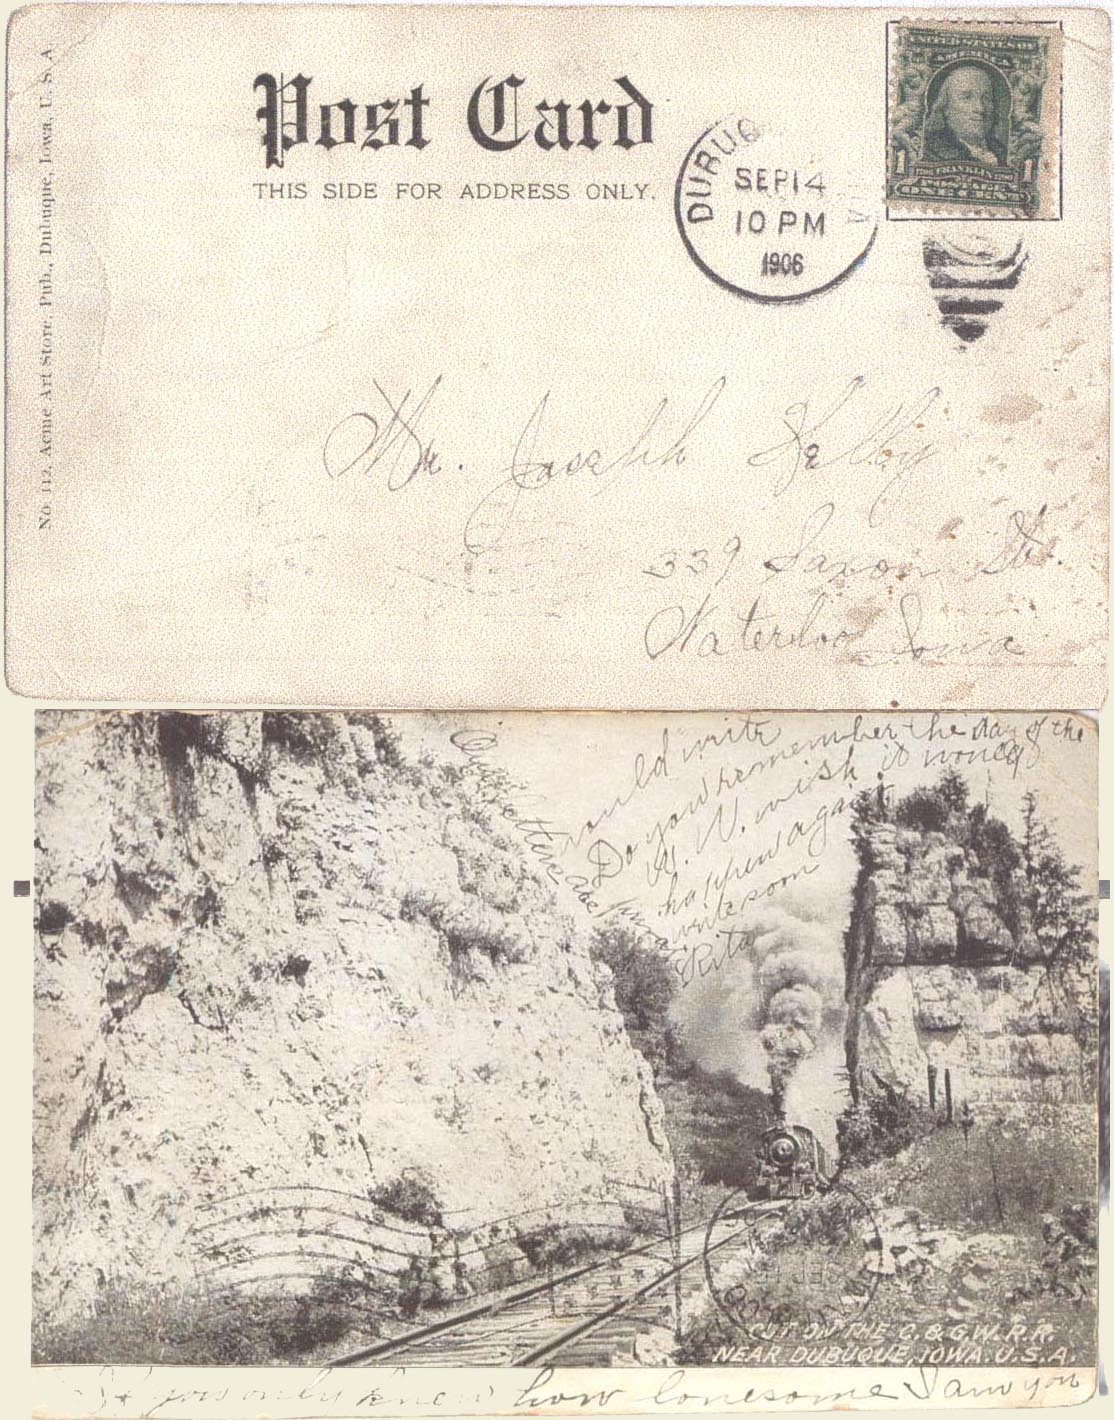 No. 112. Acme Art Store, Pub., Dubuque, Iowa, U. S. A.
Post Card
THIS SIDE FOR ADDRESS ONLY.
DUBUQ
SEP 14
10 PM
1906
UNITED STATES OF
AMERICA
1 FRANKLIN 1
ONE CENT
Mr. Joseph Kelly
339 Saxon St.
Waterloo Iowa
would write
Do you remember the day of the
W. W. wish it would
happen again
write soon
Rita
CUT ON THE C. & G.W.R.R.
NEAR DUBUQUE, IOWA. U.S.A.
If you only knew how lonesome I am you